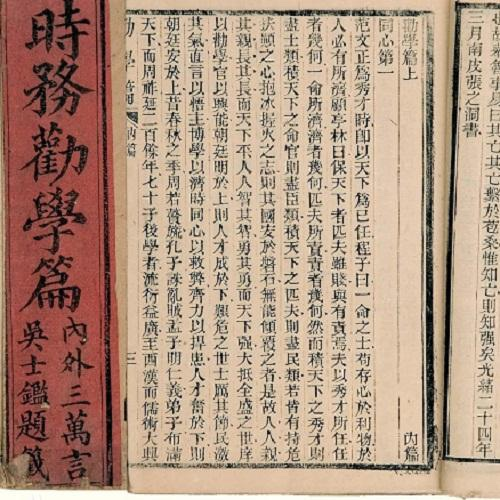 易曰其亡其亡繫於苞桑惟知亡則知强矣光緒二十四年
三月南皮張之洞書
勸學篇上 內篇
同心第一
范文正為秀才時即以天下為己任程子曰一命之士苟存心於利物於
人必有所濟顧亭林曰保天下者匹夫雖賤與有責焉夫以秀才所任任
者幾何一命所濟濟者幾何匹夫所責責者幾何然而積天下之秀才則
盡士類積天下之命官則盡臣類積天下之匹夫則盡民類若皆有持危
扶顚之心抱冰握火之志則其國安於磐石無能傾覆之者是故人人親
其親長其長而天下平人人智其智勇其勇而天下强大抵全盛之世庠
以勸學官以興能朝廷明於上則人才成於下艱危之世士厲其節民激
其氣直言以悟主博學以濟時同心以救弊齊力以捍患人才奮於下則
朝廷安於上昔春秋之季周若贅旒孔子誅亂賊孟子明仁義弟子布滿
天下而周祚延二百餘年七十子後學者流衍益廣至西漢而儒術大興
勸學 內篇 三
時務勸學篇
內外三萬言
吳士鑑題籤